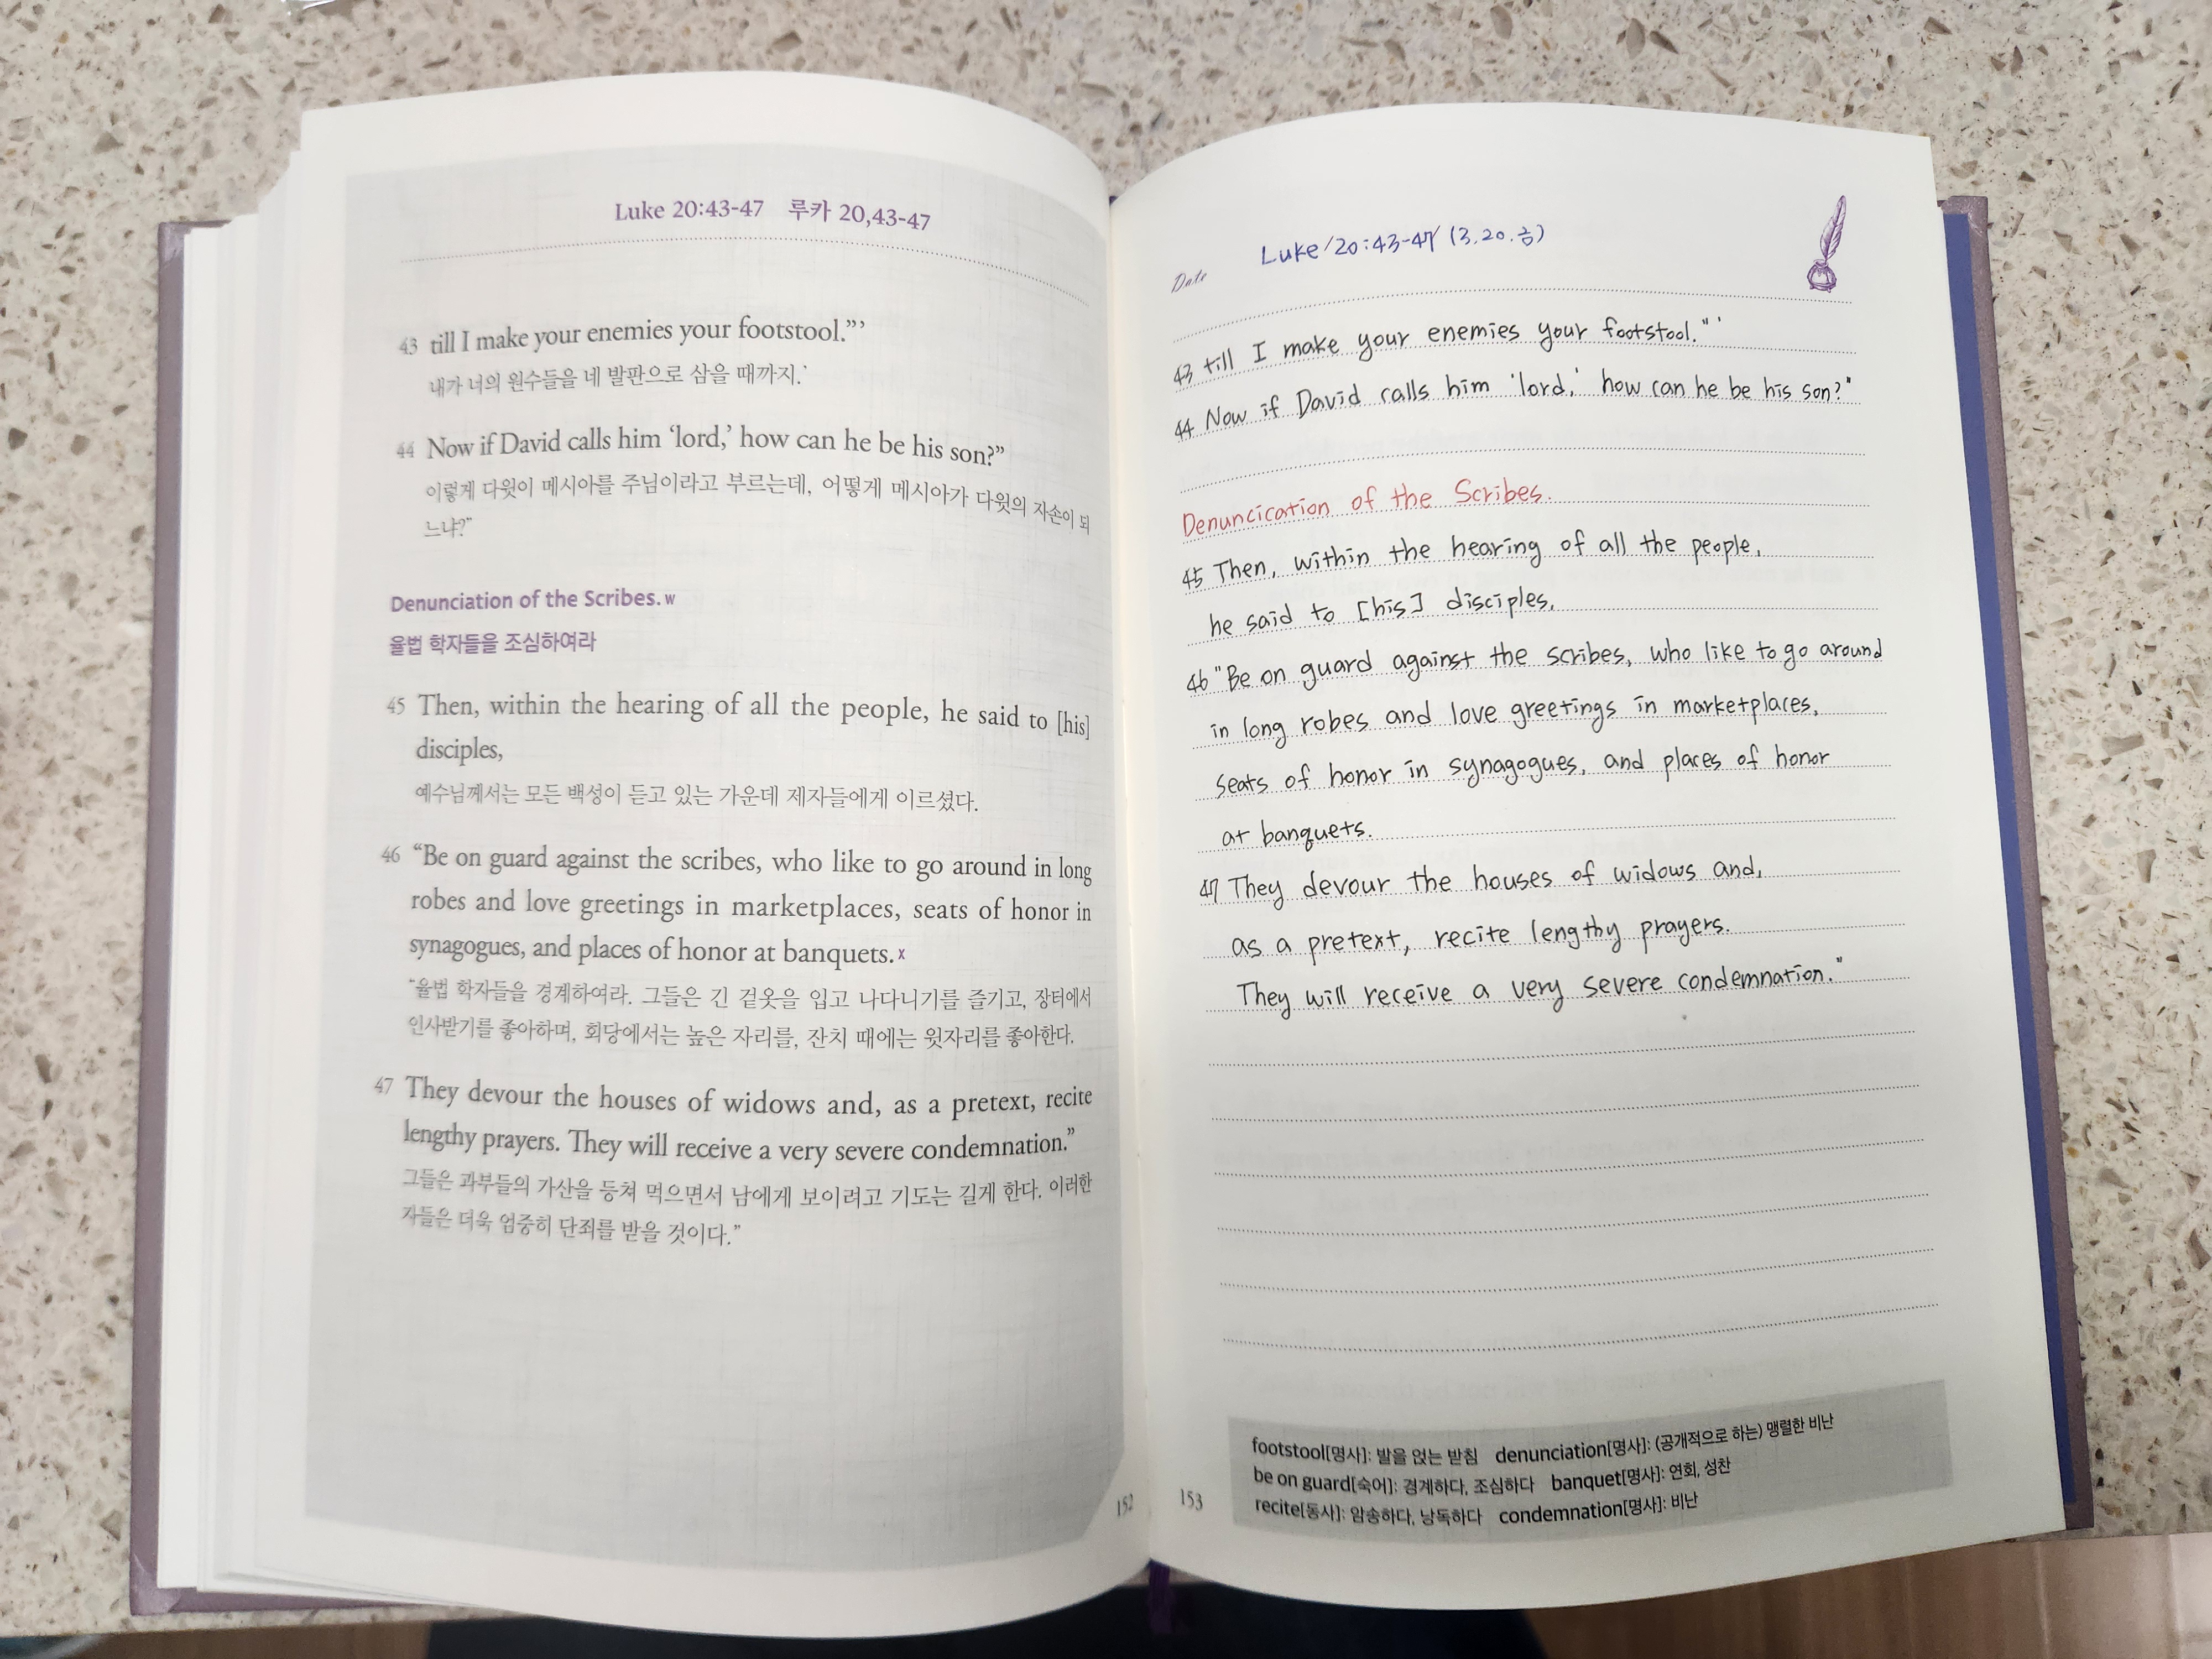 Luke 20:43-47 루카 20,43-47
43 till I make your enemies your footstool.”’
내가 너의 원수들을 네 발판으로 삼을 때까지.’
44 Now if David calls him ‘lord,’ how can he be his son?”
이렇게 다윗이 메시아를 주님이라고 부르는데, 어떻게 메시아가 다윗의 자손이 되
느냐?”
Denunciation of the Scribes. w
율법 학자들을 조심하여라
45 Then, within the hearing of all the people, he said to [his]
disciples,
예수님께서는 모든 백성이 듣고 있는 가운데 제자들에게 이르셨다.
46 “Be on guard against the scribes, who like to go around in long
robes and love greetings in marketplaces, seats of honor in
synagogues, and places of honor at banquets. x
“율법 학자들을 경계하여라. 그들은 긴 겉옷을 입고 나다니기를 즐기고, 장터에서
인사받기를 좋아하며, 회당에서는 높은 자리를, 잔치 때에는 윗자리를 좋아한다.
47 They devour the houses of widows and, as a pretext, recite
lengthy prayers. They will receive a very severe condemnation.”
그들은 과부들의 가산을 등쳐 먹으면서 남에게 보이려고 기도는 길게 한다. 이러한
자들은 더욱 엄중히 단죄를 받을 것이다.”
152
Date Luke/20:43-47 (3.20.금)
43 till I make your enemies your footstool."'
44 Now if David calls him 'lord,' how can he be his son?"
Denuncication of the Scribes.
45 Then, within the hearing of all the people,
he said to [his] disciples,
46 "Be on guard against the scribes, who like to go around
in long robes and love greetings in marketplaces,
seats of honor in synagogues, and places of honor
at banquets.
47 They devour the houses of widows and,
as a pretext, recite lengthy prayers.
They will receive a very severe condemnation."
footstool[명사]: 발을 얹는 받침 denunciation[명사]: (공개적으로 하는) 맹렬한 비난
be on guard[숙어]: 경계하다, 조심하다 banquet[명사]: 연회, 성찬
recite[동사]: 암송하다, 낭독하다 condemnation[명사]: 비난
153